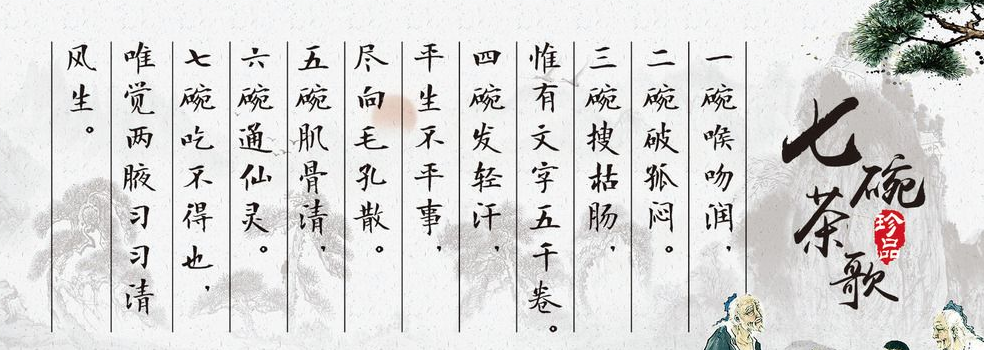 七碗茶歌
珍品
一碗喉吻润，
二碗破孤闷。
三碗搜枯肠，
惟有文字五千卷。
四碗发轻汗，
平生不平事，
尽向毛孔散。
五碗肌骨清，
六碗通仙灵。
七碗吃不得也，
唯觉两腋习习清
风生。